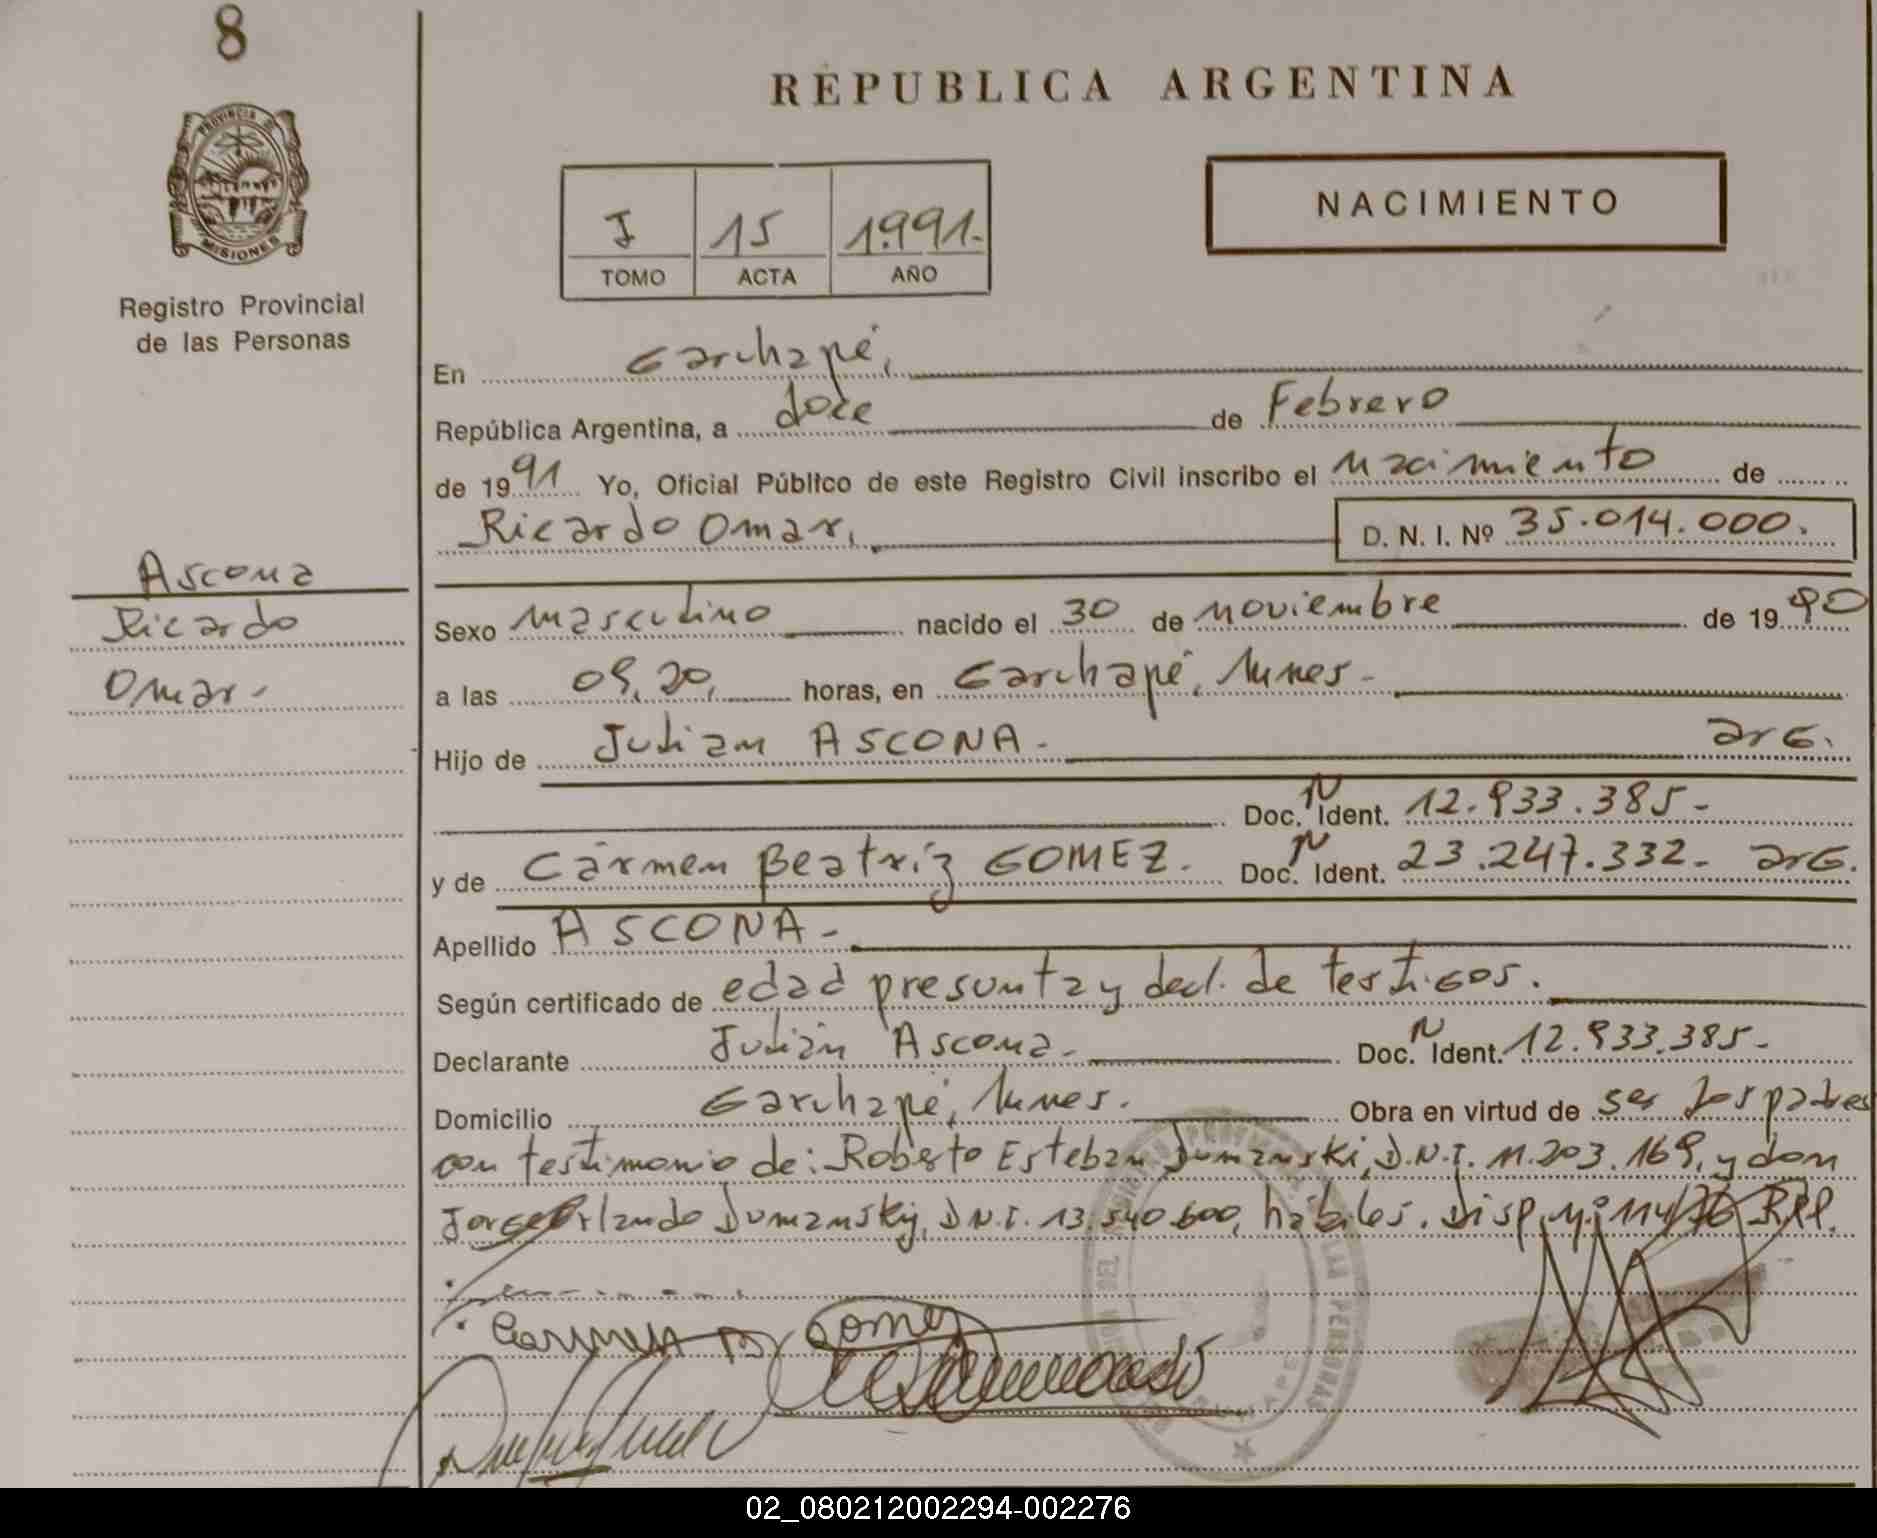 8
REPUBLICA ARGENTINA
PROVINCIA DE
MISIONES
Registro Provincial
de las Personas
I 15 1991.-
TOMO ACTA AÑO
NACIMIENTO
En Garuhapé,
República Argentina, a doce de Febrero
de 1991 Yo, Oficial Público de este Registro Civil inscribo el nacimiento de
Ricardo Omar, D. N. I. Nº 35.014.000.
Ascona
Ricardo
Omar.-
Sexo masculino nacido el 30 de noviembre de 1990
a las 09,20, horas, en Garuhapé, Mnes.-
Hijo de Julian ASCONA.- arG.
Doc. N Ident. 12.933.385-
y de Cármen Beatríz GOMEZ. Doc. N Ident. 23.247.332- arG.
Apellido ASCONA-
Según certificado de edad presunta y decl. de testigos.
Declarante Julián Ascona.- Doc. N Ident. 12.933.385-
Domicilio Garuhapé, Mnes.- Obra en virtud de ser los padres
con testimonio de: Roberto Esteban Dumanski, D.N.I. 11.203.169, y don
Jorge Orlando Dumansky, D.N.I. 13.540.600, hábiles. Disp. nº 114/76 RPP.
Carmen B Gomez
02_080212002294-002276